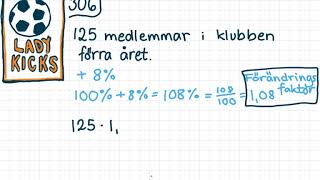 LADY
KICKS
306
125 medlemmar i klubben
förra året.
+ 8%
100% + 8% = 108% = 108/100 = 1,08
Förändrings
faktor
125 · 1,